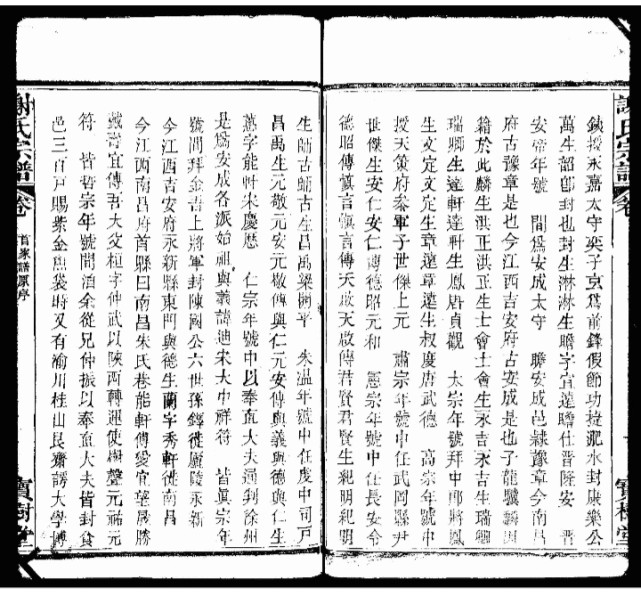 鉞授永嘉太守奕子京爲前鋒假節功捷淝水封康樂公
萬生韶卽封也封生淋淋生瞻字宜遠瞻仕晋隆安 晋
安帝年號 間爲安成太守 瞻安成邑隷豫章今南昌
府古豫章是也今江西吉安府古安成是也子龍驎驎因
籍於此麟生洪正洪正生士會士會生永吉永吉生瑞卿
瑞卿生達軒達軒生鳳唐貞觀 太宗年號拜中郎將鳳
生文定文定生章達章達生叔度唐武德 高宗年號中
授天策府參軍子世傑上元 肅宗年號中任武岡縣尹
世傑生安仁安仁傳德昭元和 憲宗年號中任長安令
德昭傳慎言慎言傳天啟天啟傳若賢君賢生紀明紀明
生師古師古生昌禹梁開平 朱温年號中任虔中司戸
昌禹生元敬元安元敬傳與仁元安傳與義與德與仁生
萬字能忭宋慶歷 仁宗年號中以奉直大夫通判徐州
是爲安成各派始祖與義諱迪宋大中祥符 皆眞宗年
號間拜金吾上將軍封陳國公六世孫鐸徙廬陵永新
今江西吉安府永新縣東門與德生蘭字秀軒徙南昌
今江西南昌府首縣曰南昌朱氏巷能軒傳愛宜望晟勝
晟宜傳吾大父桓子仲武以陝西轉運使樹聲元祐元
符 皆哲宗年號間酒余從兄仲振以奉直大夫皆封食
邑三百戸賜紫金魚袋時又有渝川桂山艮齋諤大學博
謝氏宗譜
卷
首象譜原序
寶樹堂
謝氏宗譜
卷
寶樹堂